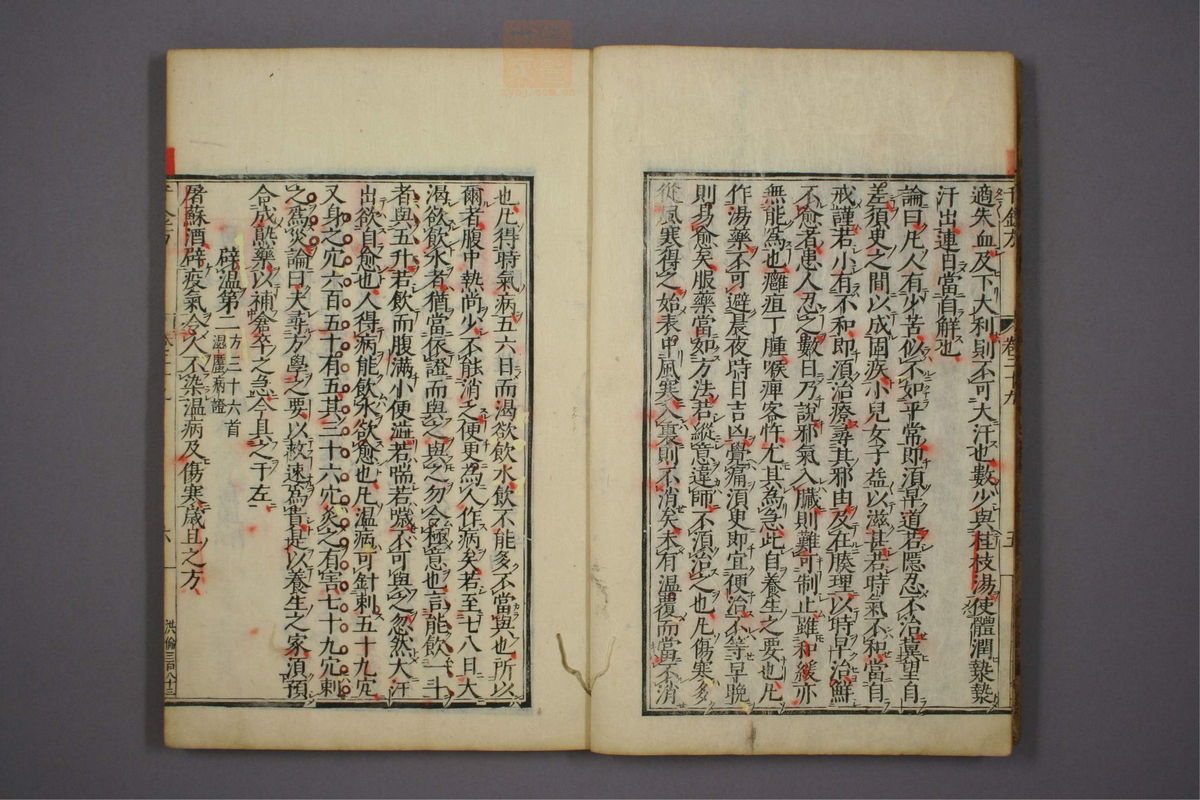 適失血及下大利則不可大汗也數少與桂枝湯使體潤漐漐
汗出連日當自解也
論曰凡人有少苦似不如平常即須早道若隱忍不治冀望自
差須臾之間以成固疾小兒女子益以滋甚若時氣不和當自
戒謹若小有不和即須治療尋其邪由及在腠理以時早治鮮
不愈者患人忍之數日乃說邪氣入臟則難可制止雖和緩亦
無能為也癰疽丁腫喉痺客忤尤其為急此自養生之要也凡
作湯藥不可避晨夜時日吉凶覺病須臾即宜便治不等早晚
則易愈矣服藥當如方法若縱意違師不須治之也凡傷寒多
從風寒得之始表中風寒入裏則不消矣未有溫覆而當不消
也凡得時氣病五六日而渴欲飲水飲不能多不當與也所以
爾者腹中熱尚少不能消之便更為人作病矣若至七八日大
渴欲飲水者猶當依證而與之與之勿令極意也言能飲一斗
者與五升若飲而腹滿小便澁若喘若噦不可與之忽然大汗
出欲自愈也人得病能飲水欲愈也凡溫病可針刺五十九穴
又身之穴六百五十有五其三十六穴灸之有害七十九穴刺
之為災論曰夫尋方學之要以救速為貴是以養生之家須預
合成熟藥以補倉卒之急今具之于左
辟溫第二 方三十六首
溫䘌病證
屠蘇酒辟疫氣令人不染溫病及傷寒歲旦之方
卷二十九
五
六